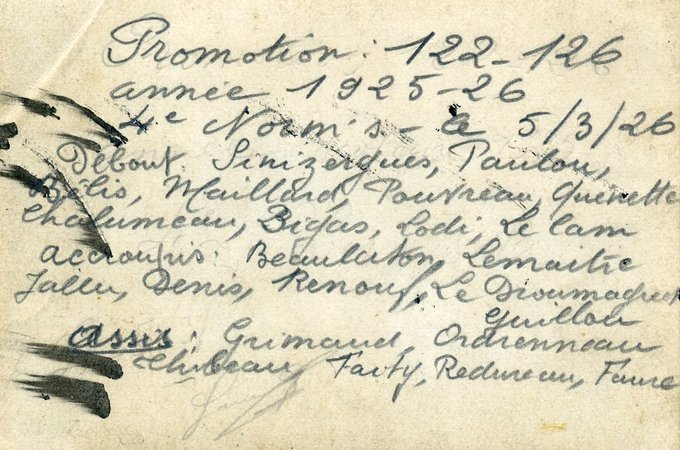 Promotion : 122-126
année 1925-26
4e Norm's - le 5/3/26
Debout Sinizergues, Paulou,
Bélis, Maillard, Pouvreau, Quenette
Chalumeau, Bigas, Lodi, Le Cam
accroupis : Lemaitre
Denis, Renouf,
Guillou
assis : Grimaud, Ordrenneau
Thibeau, Tarty, Redureau, Faure